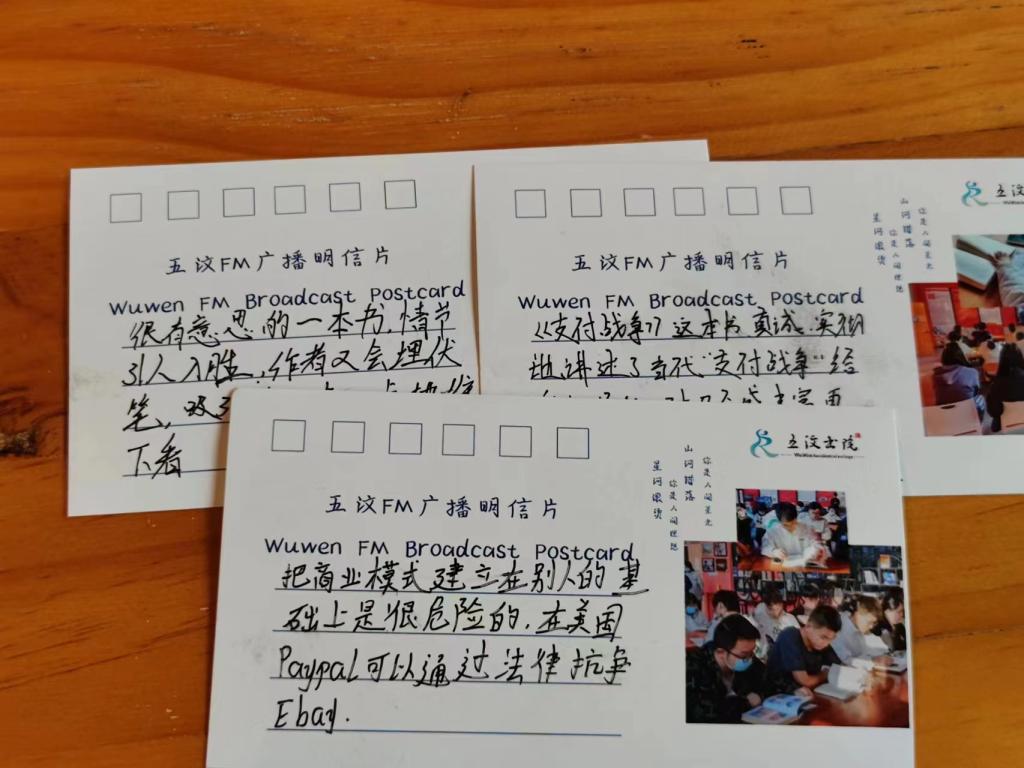 五汶FM广播明信片
Wuwen FM Broadcast Postcard
很有意思的一本书,情节
引人入胜,作者又会埋伏
笔,吸
下看
五汶FM广播明信片
Wuwen FM Broadcast Postcard
《支付战争》这本书真诚、实彻
地讲述了当代“支付战争”经
山河踏落
星河滚烫
你是人间星光
你是人间理想
五汶
五汶FM广播明信片
Wuwen FM Broadcast Postcard
把商业模式建立在别人的基
础上是很危险的,在美国
Paypal可以通过法律抗争
Ebay.
山河踏落
星河滚烫
你是人间星光
你是人间理想
五汶书院